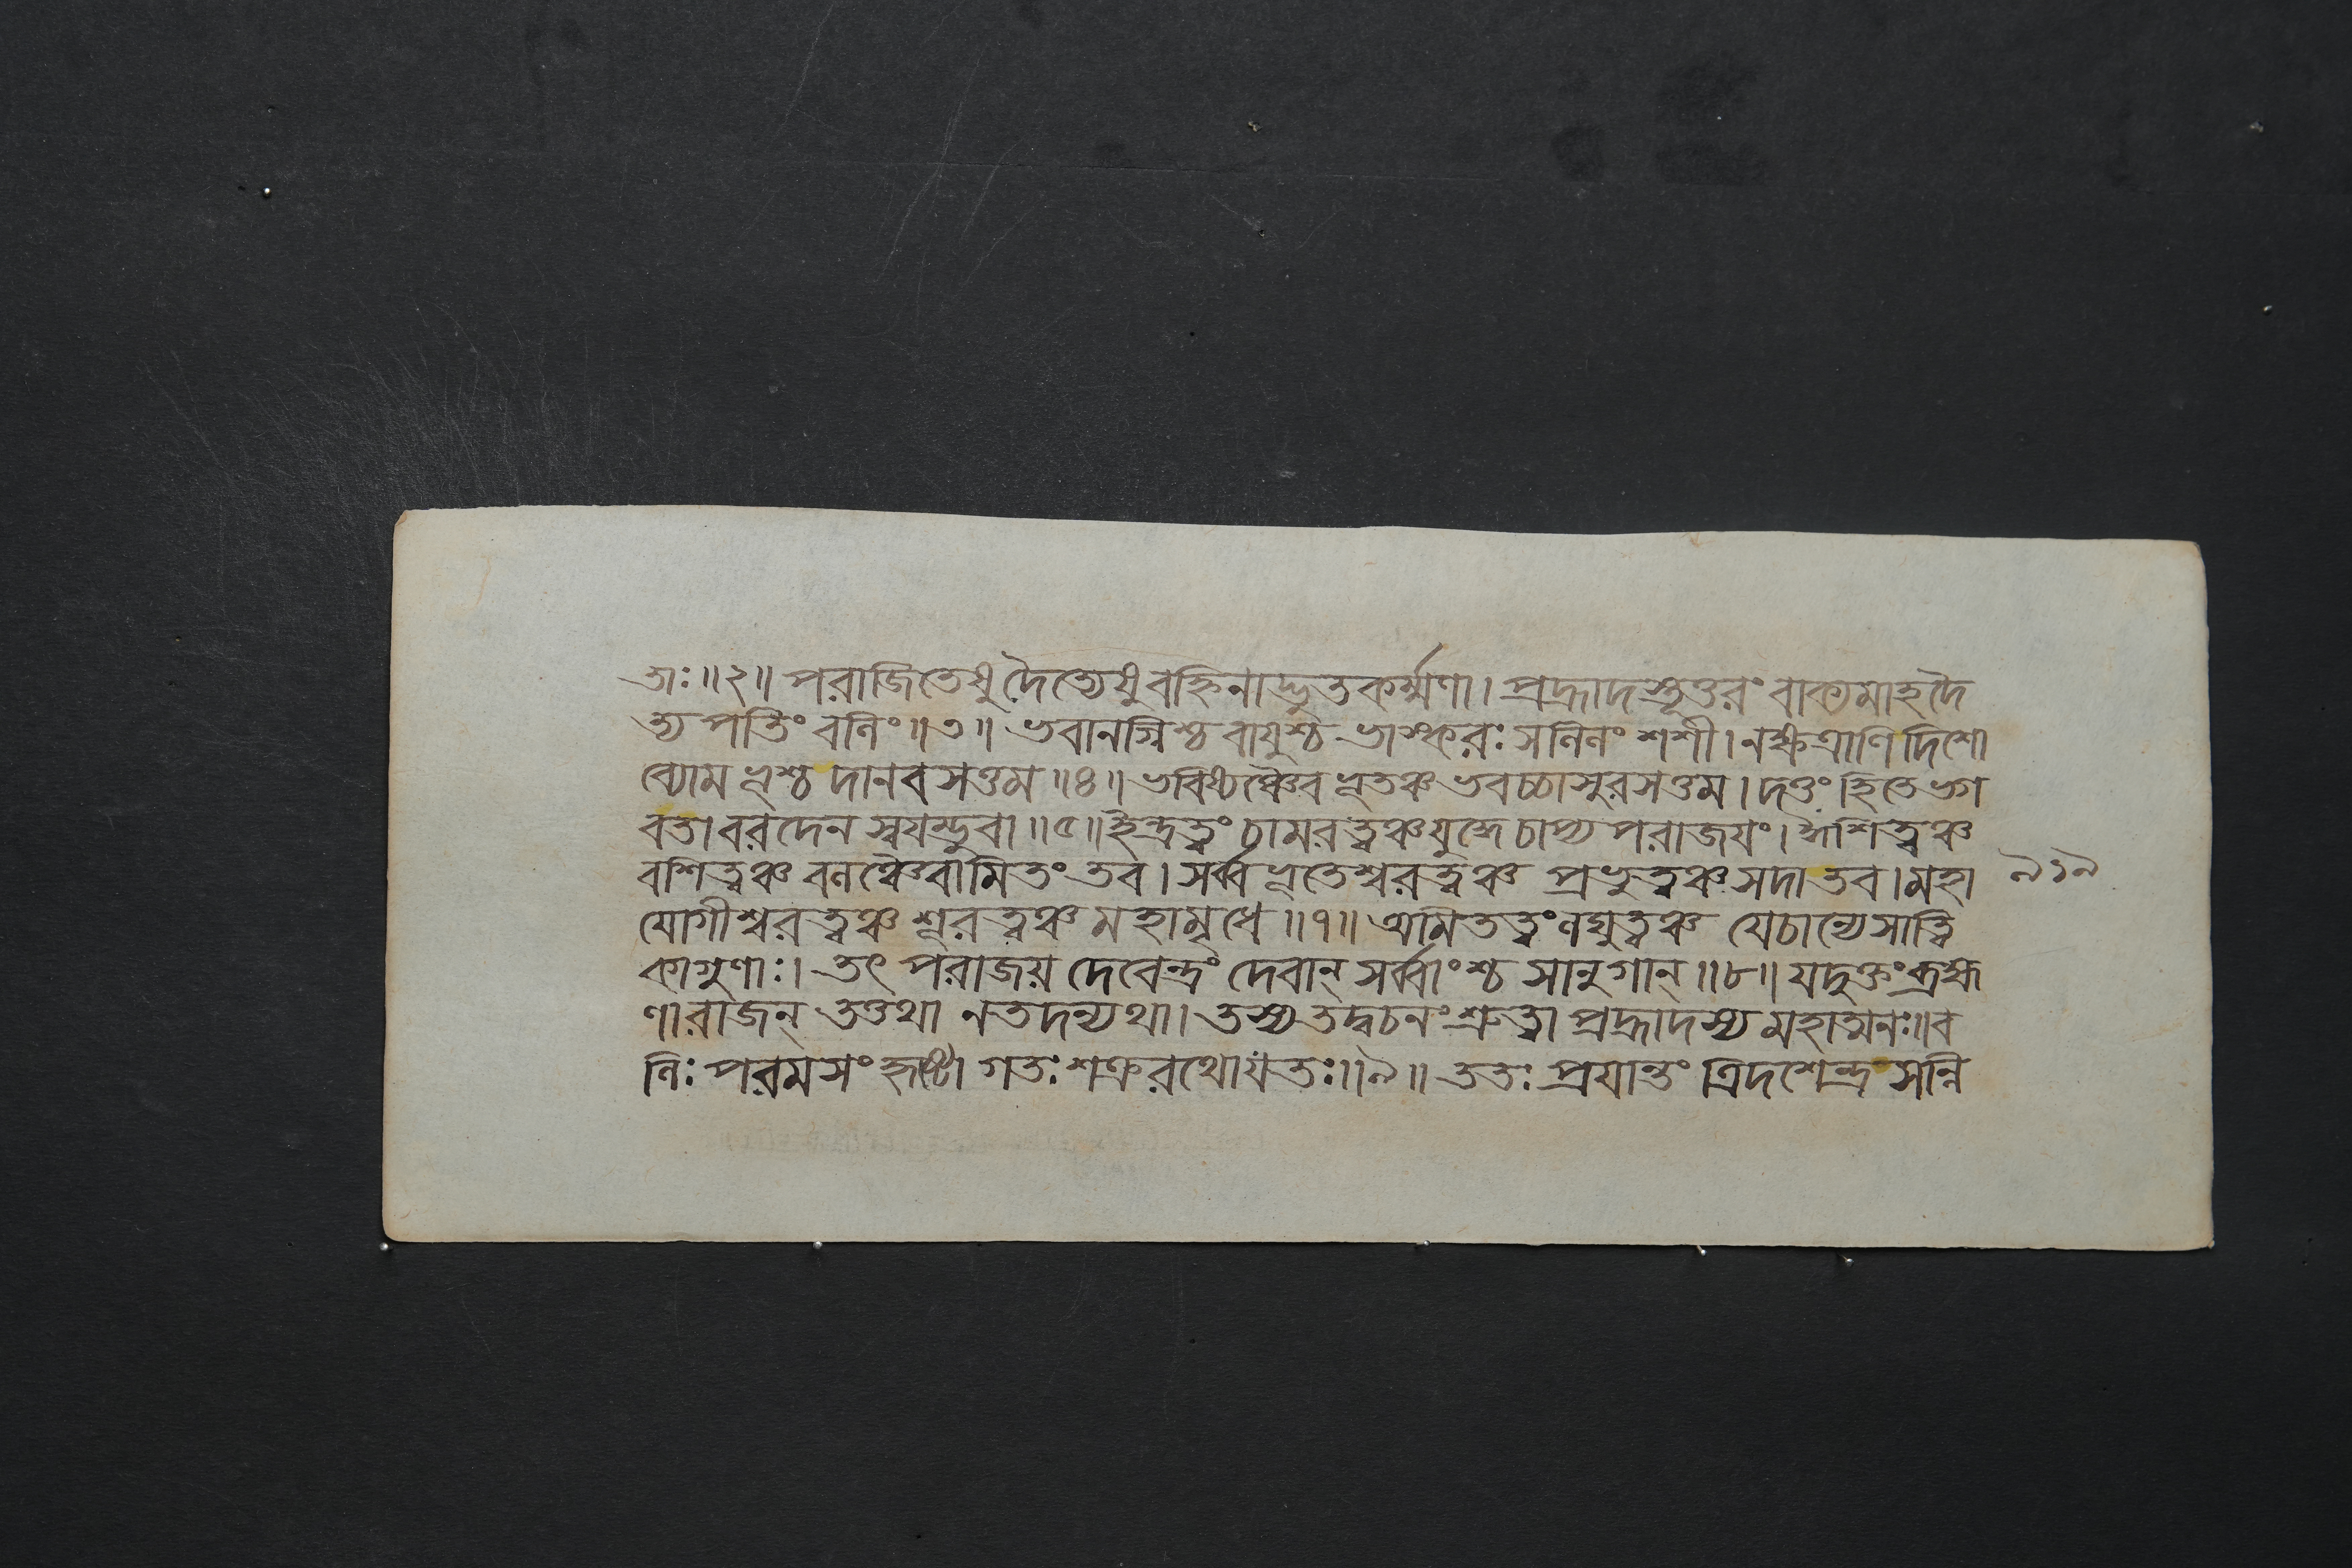 তাঃ॥২॥ পরাজিতেষু দৈত্যেষু বহ্নিনাদ্ভুতকর্ম্মণা। প্রহ্লাদস্তূত্তরং বাক্যমাহ দৈ
ত্য পতিং বলিং॥৩॥ ভবানগ্নিশ্চ বায়ুশ্চ ভাস্করঃ সলিলং শশী। নক্ষত্রাণি দিশো
ব্যোম ভূশ্চ দানব সত্তম॥৪॥ ভবিষ্যঞ্চৈব ভূতঞ্চ ভবচ্চাসুরসত্তম। দত্তং হি তে ভগ
বতা বরদেন স্বয়ম্ভুবা॥৫॥ ইন্দ্রত্বং চামরত্বঞ্চ যুদ্ধে চাপ্য পরাজয়ং। ঈশিত্বঞ্চ
বশিত্বঞ্চ বলঞ্চৈবামিতং তব। সর্ব্বভূতেশ্বরত্বঞ্চ প্রভুত্বঞ্চ সদা তব। মহা
৯১৯
যোগীশ্বরত্বঞ্চ শূরত্বঞ্চ মহামৃধে॥৭॥ অমিতত্বং লঘুত্বঞ্চ যে চান্যে সাত্ত্বি
কা গুণাঃ। তৎ পরাজয় দেবেন্দ্রং দেবান্ সর্ব্বাংশ্চ সানুগান্॥৮॥ যদুক্তং ব্রহ্ম
ণা রাজন্ তত্তথা ন তদন্যথা। তস্য তদ্বচনং শ্রুত্বা প্রহ্লাদস্য মহাত্মনঃ॥ ব
লিঃ পরমসংহৃষ্টো গতঃ শক্ররথো যতঃ॥৯॥ ততঃ প্রয়ান্তং ত্রিদশেন্দ্র সন্নি